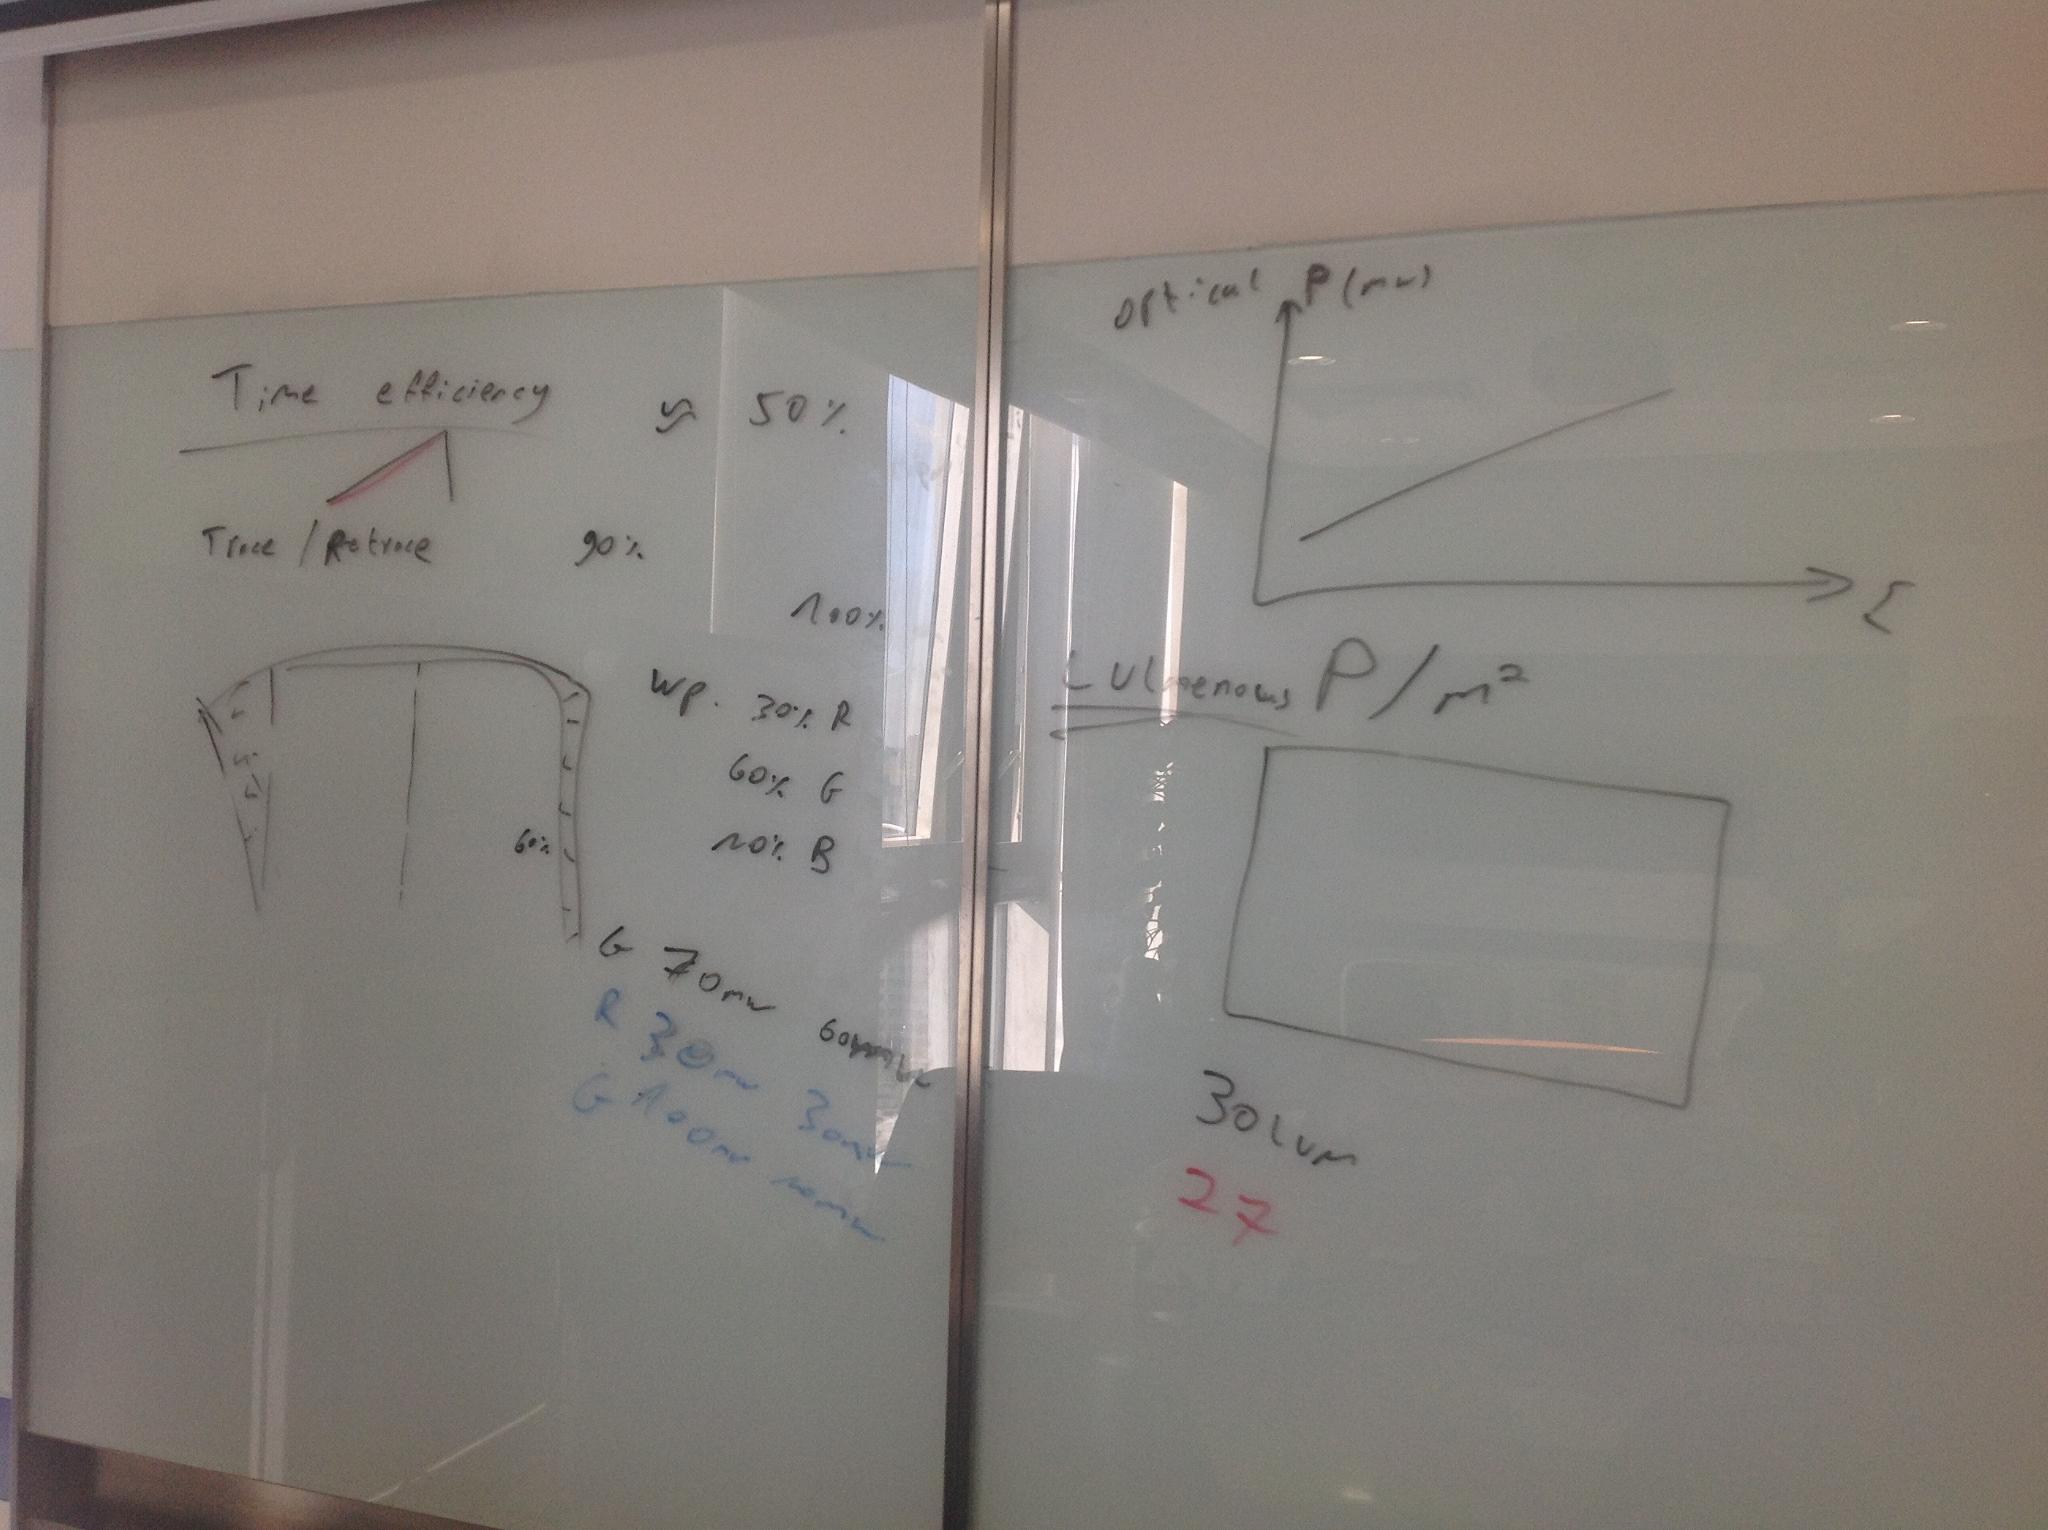 Time efficiency ≈ 50%
Trace / Retrace 90%
100%
WP. 30% R
60% G
10% B
60%
G 70mw
R 30mw 30mw
G 100mw 10mw
Optical P (mw)
P/m²
30 Lum
27